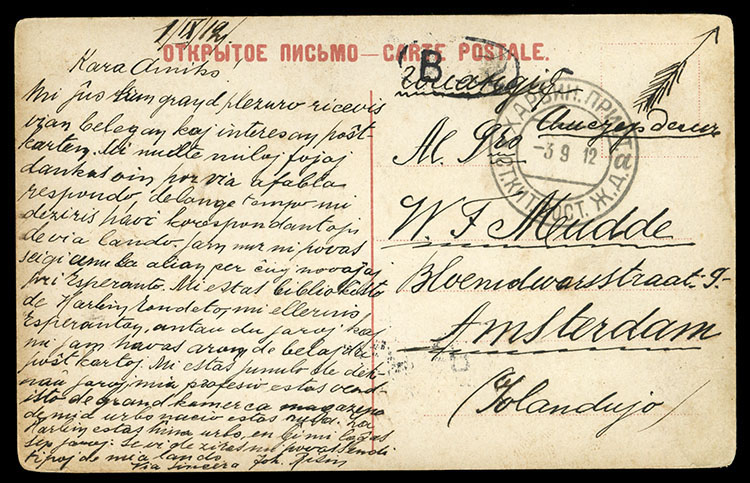 1/IX/12
ОТКРЫТОЕ ПИСЬМО — CARTE POSTALE.
Kara Amiko!
Mi ĵus kun granda plezuro ricevis
vian belegan kaj interesan poŝt-
karton. Mi multe miloj fojoj
dankas vin por via afabla
respondo, de longe tempo mi
deziris havi korespondantojn
de via lando. Jam nun ni povas
sciigi unu la alian per ĉiuj novaĵoj
pri Esperanto. Mi estas bibliotekisto
de Harbin Rondeto, mi ellernis
Esperanton, antaŭ du jaroj kaj
mi jam havas de belaj
poŝtkartoj. Mi estas junulo de dek-
naŭ jaroj, mia profesio estas vend-
isto de grand komerca magazeno
de mia urbo nacio estas rusa. La
Harbin estas ĥina urbo, en ĝi mi loĝas
sep jaroj. Se vi deziras mi povas sendi
tipoj de mia lando
Via sincera Joh.
B
Голландія
Амстердамъ
ХАРБИН. ПРИСТ.
-3 9 12
a
ОТ. КИТ. ВОСТ. Ж.Д.
M. Gro
W. F. Mudde
Bloemdwarsstraat 9-
Amsterdam
(Holandujo)